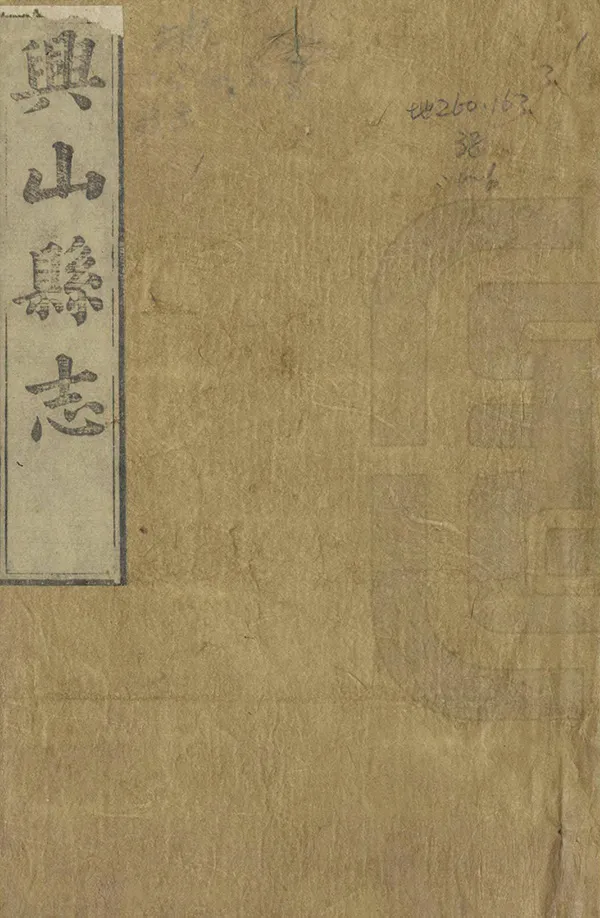 興山縣志
地260.163